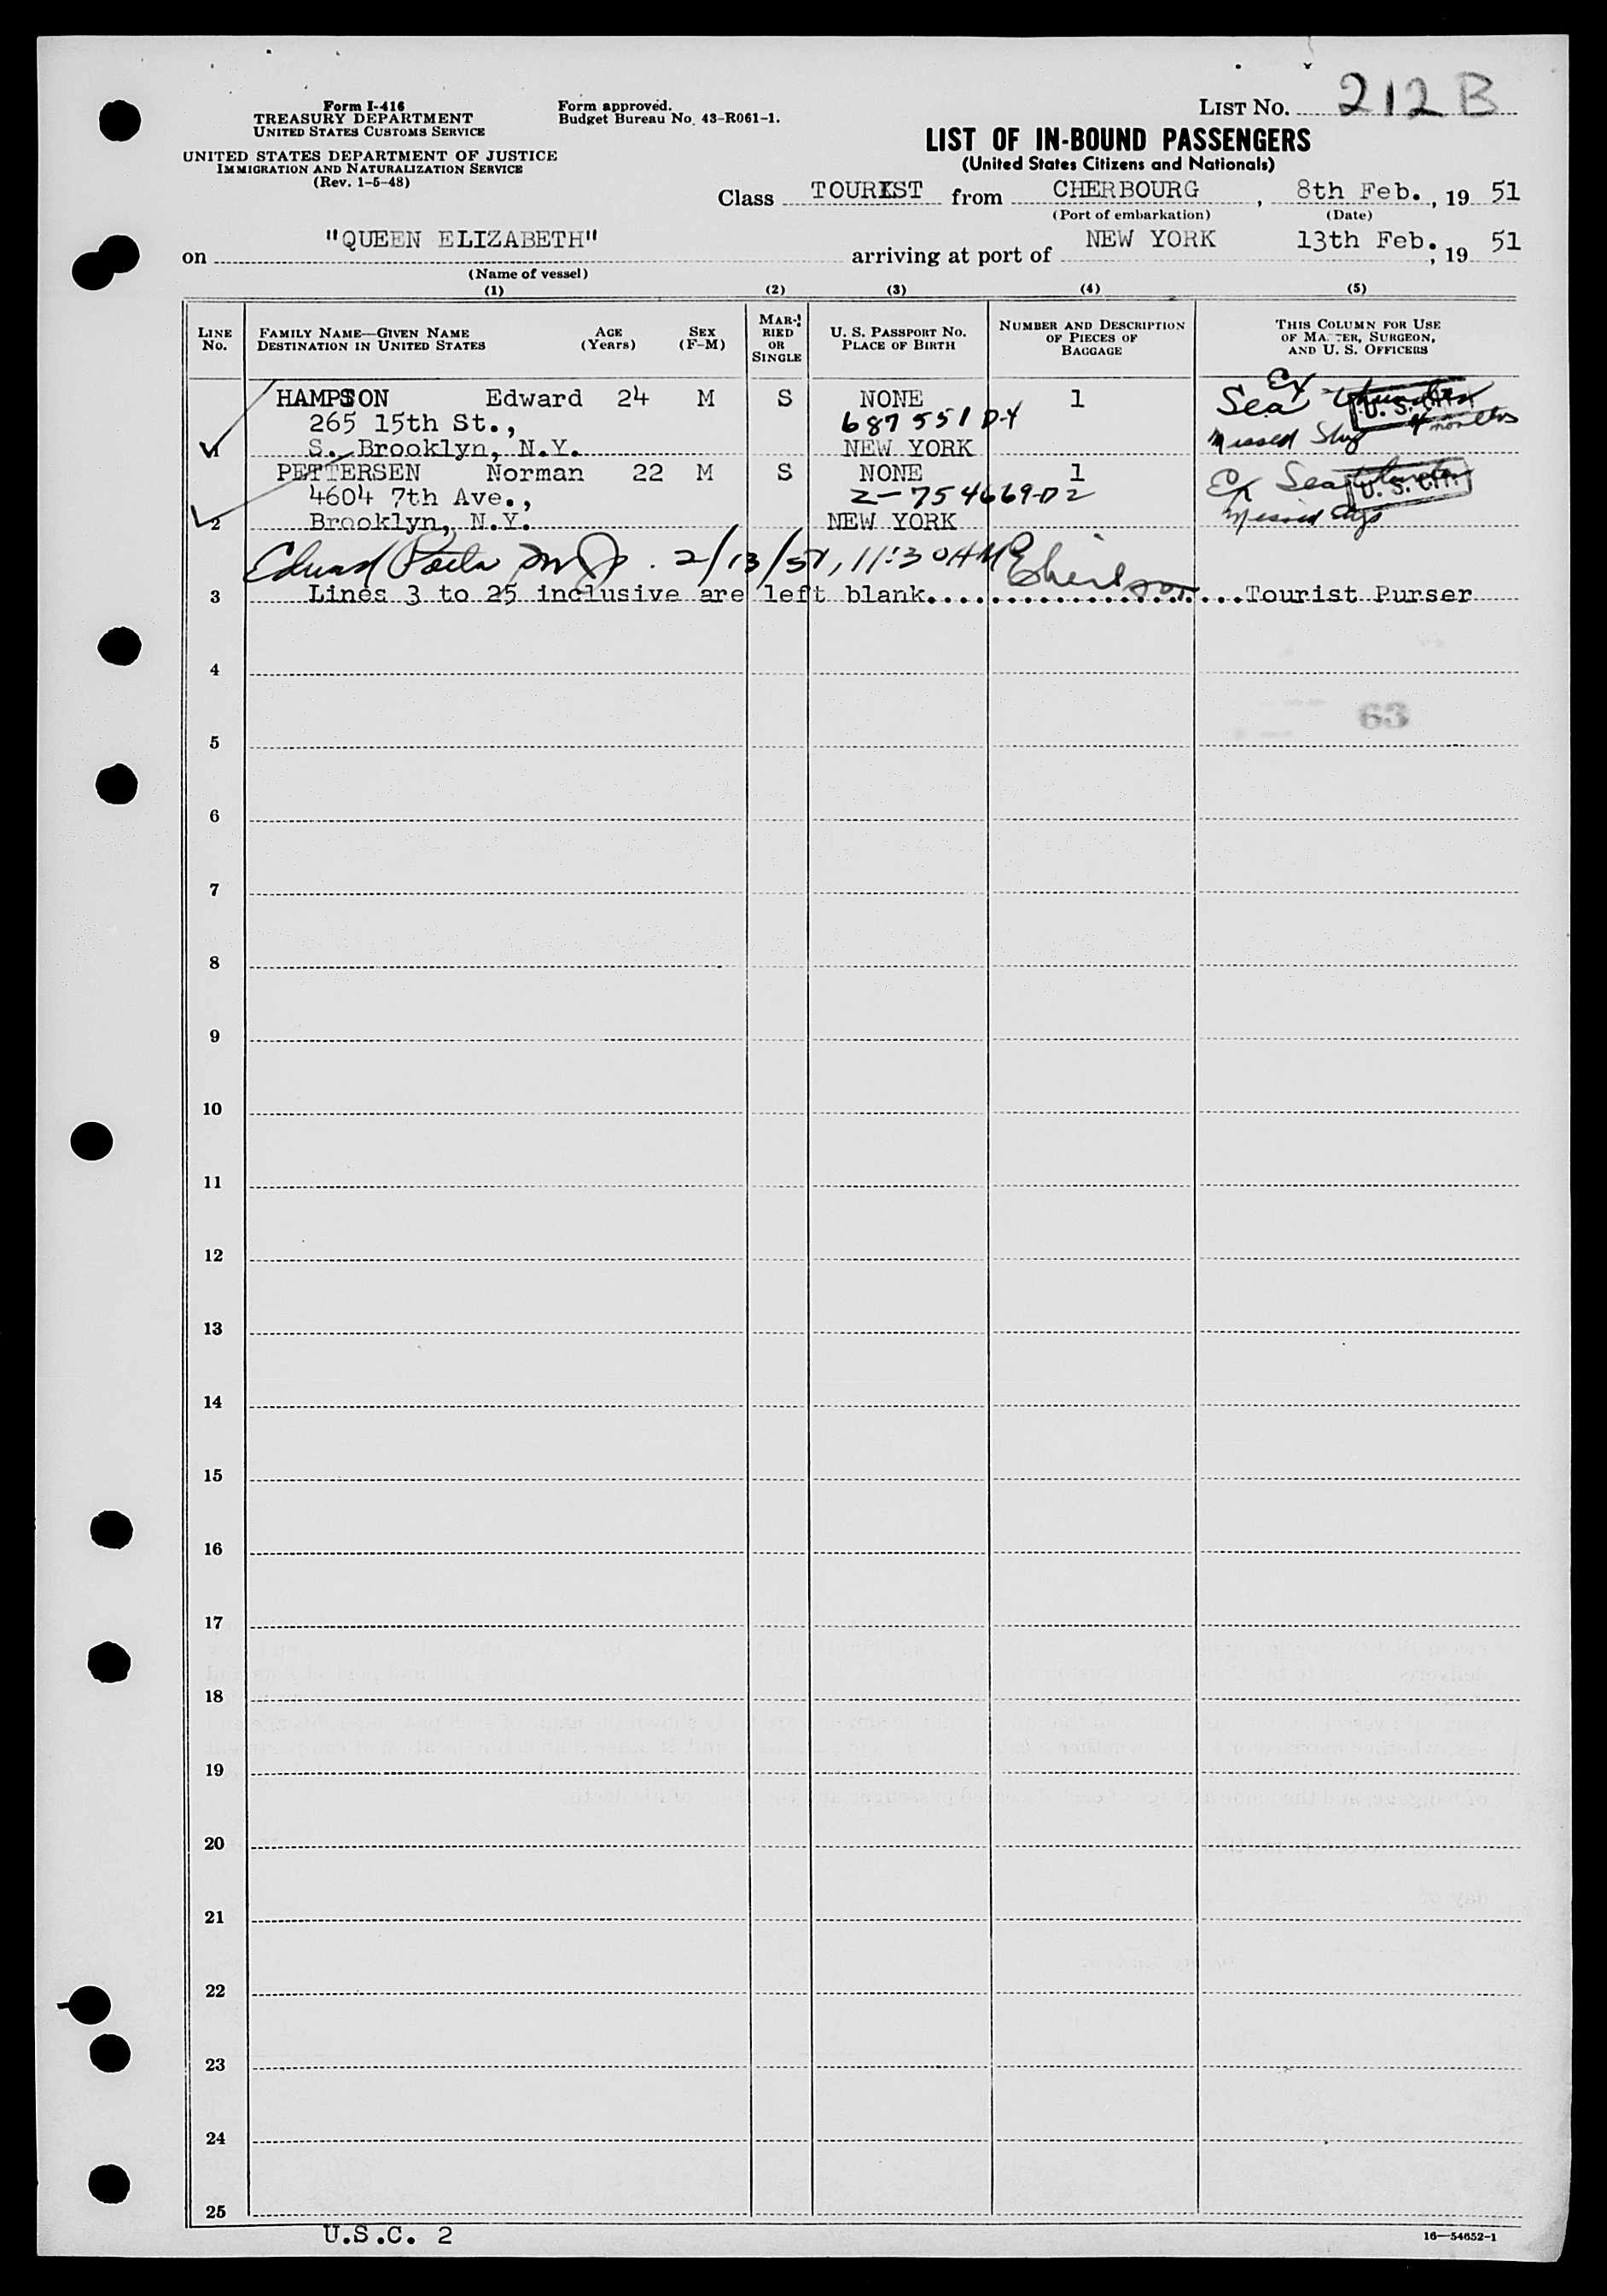 Form I-416
TREASURY DEPARTMENT
UNITED STATES CUSTOMS SERVICE
UNITED STATES DEPARTMENT OF JUSTICE
IMMIGRATION AND NATURALIZATION SERVICE
(Rev. 1-5-48)
Form approved.
Budget Bureau No. 43-R061-1.
LIST NO. 212 B
LIST OF IN-BOUND PASSENGERS
(United States Citizens and Nationals)
Class TOURIST from CHERBOURG, 8th Feb., 19 51
(Port of embarkation) (Date)
on "QUEEN ELIZABETH" arriving at port of NEW YORK 13th Feb., 19 51
(Name of vessel)
(1) (2) (3) (4) (5)
LINE NO. FAMILY NAME—GIVEN NAME DESTINATION IN UNITED STATES AGE (Years) SEX (F-M) MARRIED OR SINGLE U. S. PASSPORT NO. PLACE OF BIRTH NUMBER AND DESCRIPTION OF PIECES OF BAGGAGE THIS COLUMN FOR USE OF MASTER, SURGEON, AND U. S. OFFICERS
HAMPSON Edward 24 M S NONE 1 Ex Sea U. S. CIT.
265 15th St., 687551 D-1 4 months
1 S. Brooklyn, N.Y. NEW YORK Missed Ship
PETTERSEN Norman 22 M S NONE 1 Ex Sea U. S. CIT.
4604 7th Ave., Z-754669-D2
2 Brooklyn, N.Y. NEW YORK Missed
Edward 2/13/51, 11:30 AM
3 Lines 3 to 25 inclusive are left blank........................Tourist Purser
4
63
5
6
7
8
9
10
11
12
13
14
15
16
17
18
19
20
21
22
23
24
25
U.S.C. 2
16—54652-1